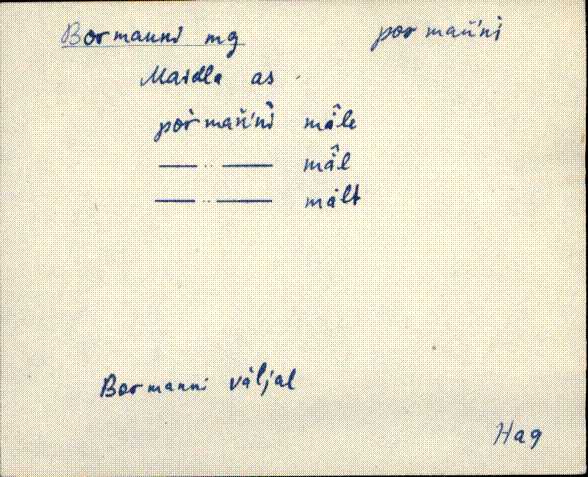 Bormanni mg pormań́ni
Maidla as.
pòrmań́nì mâle
— ·· — mâl
— ·· — mált
Bormanni väljal
Hag